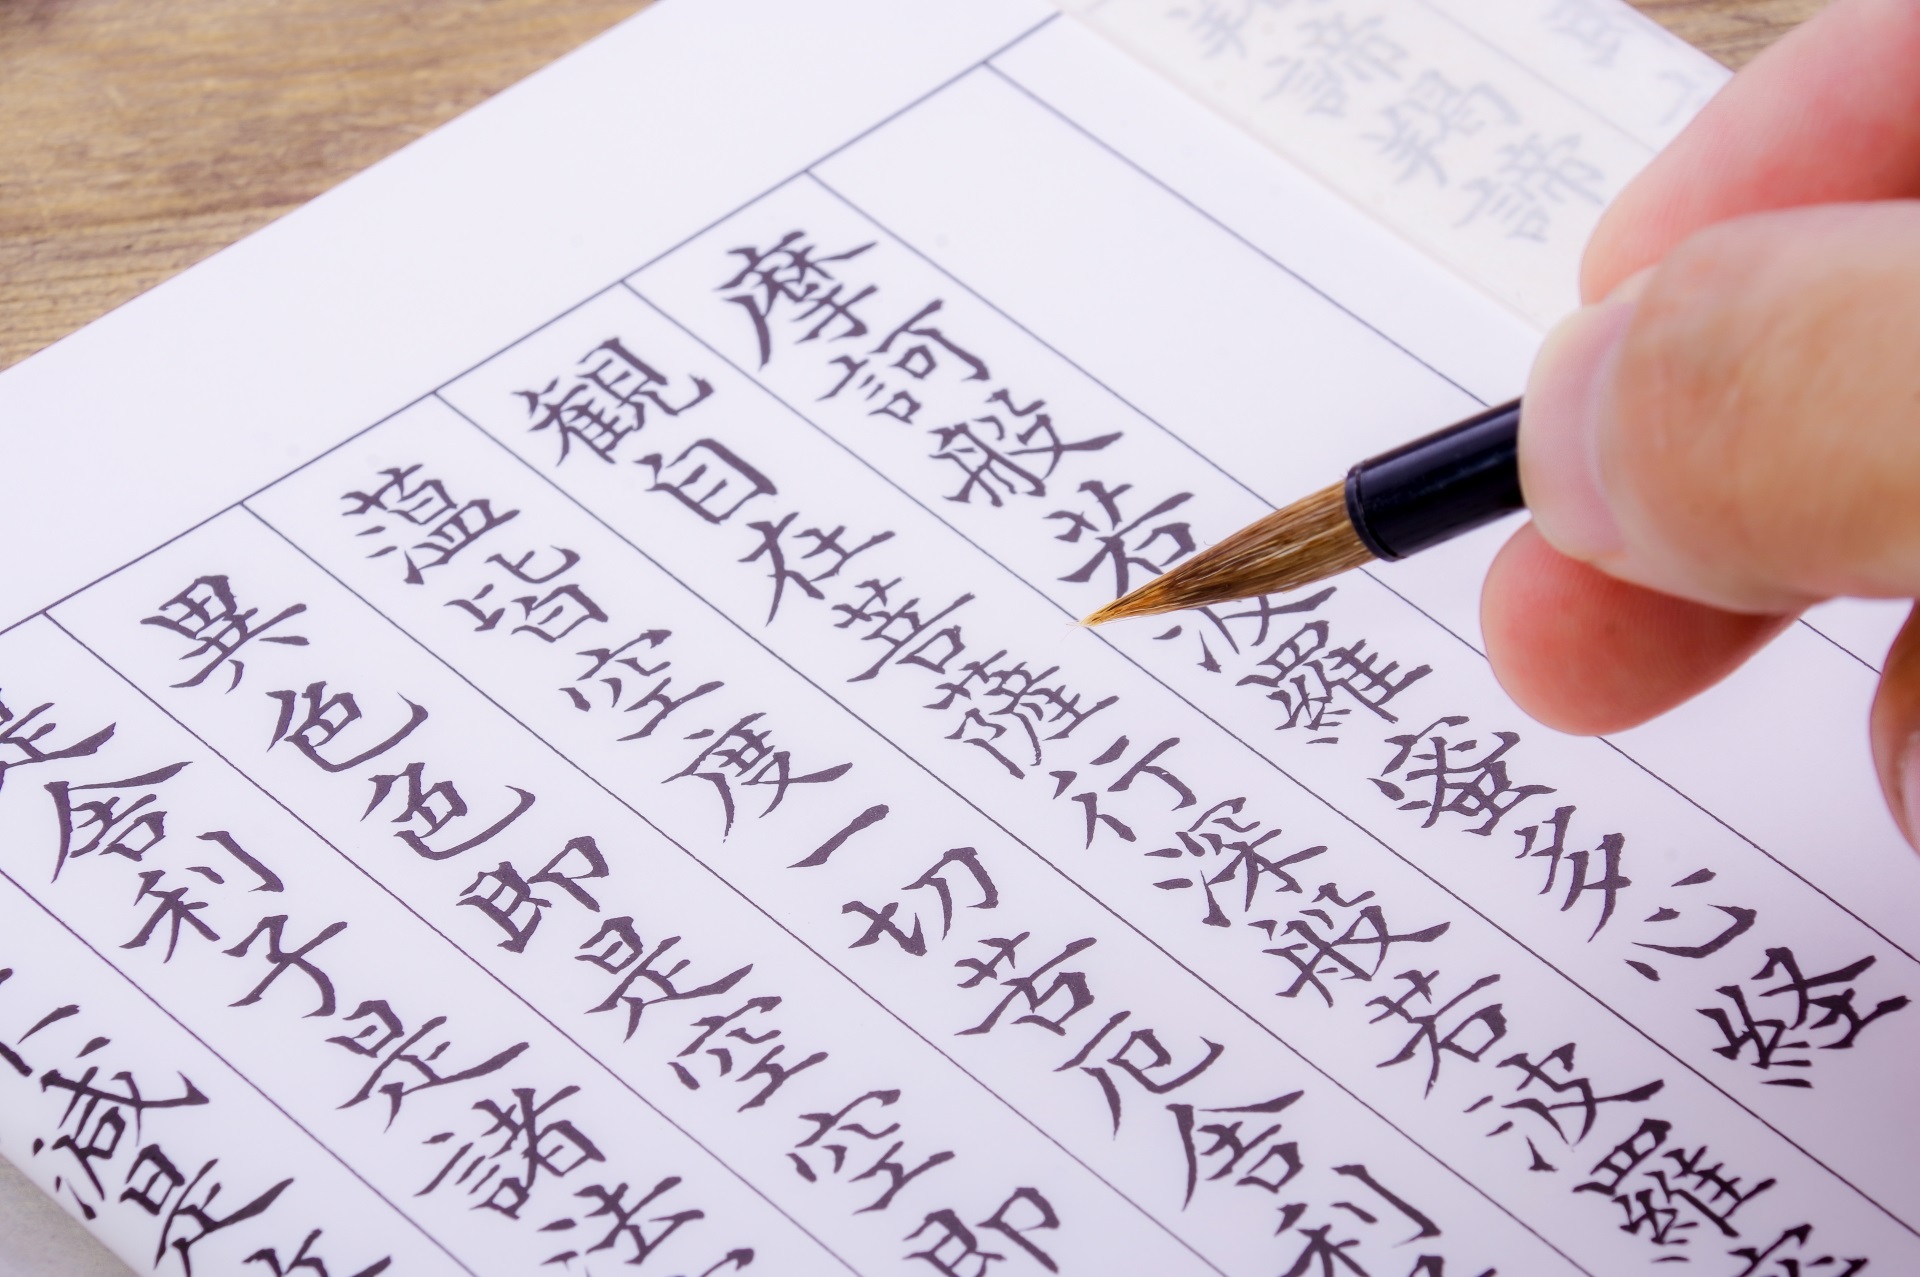 羯諦羯諦
摩訶般若波羅蜜多心経
観自在菩薩行深般若波羅
薀皆空度一切苦厄舎利
異色色即是空空即
是舎利子是諸法
減是